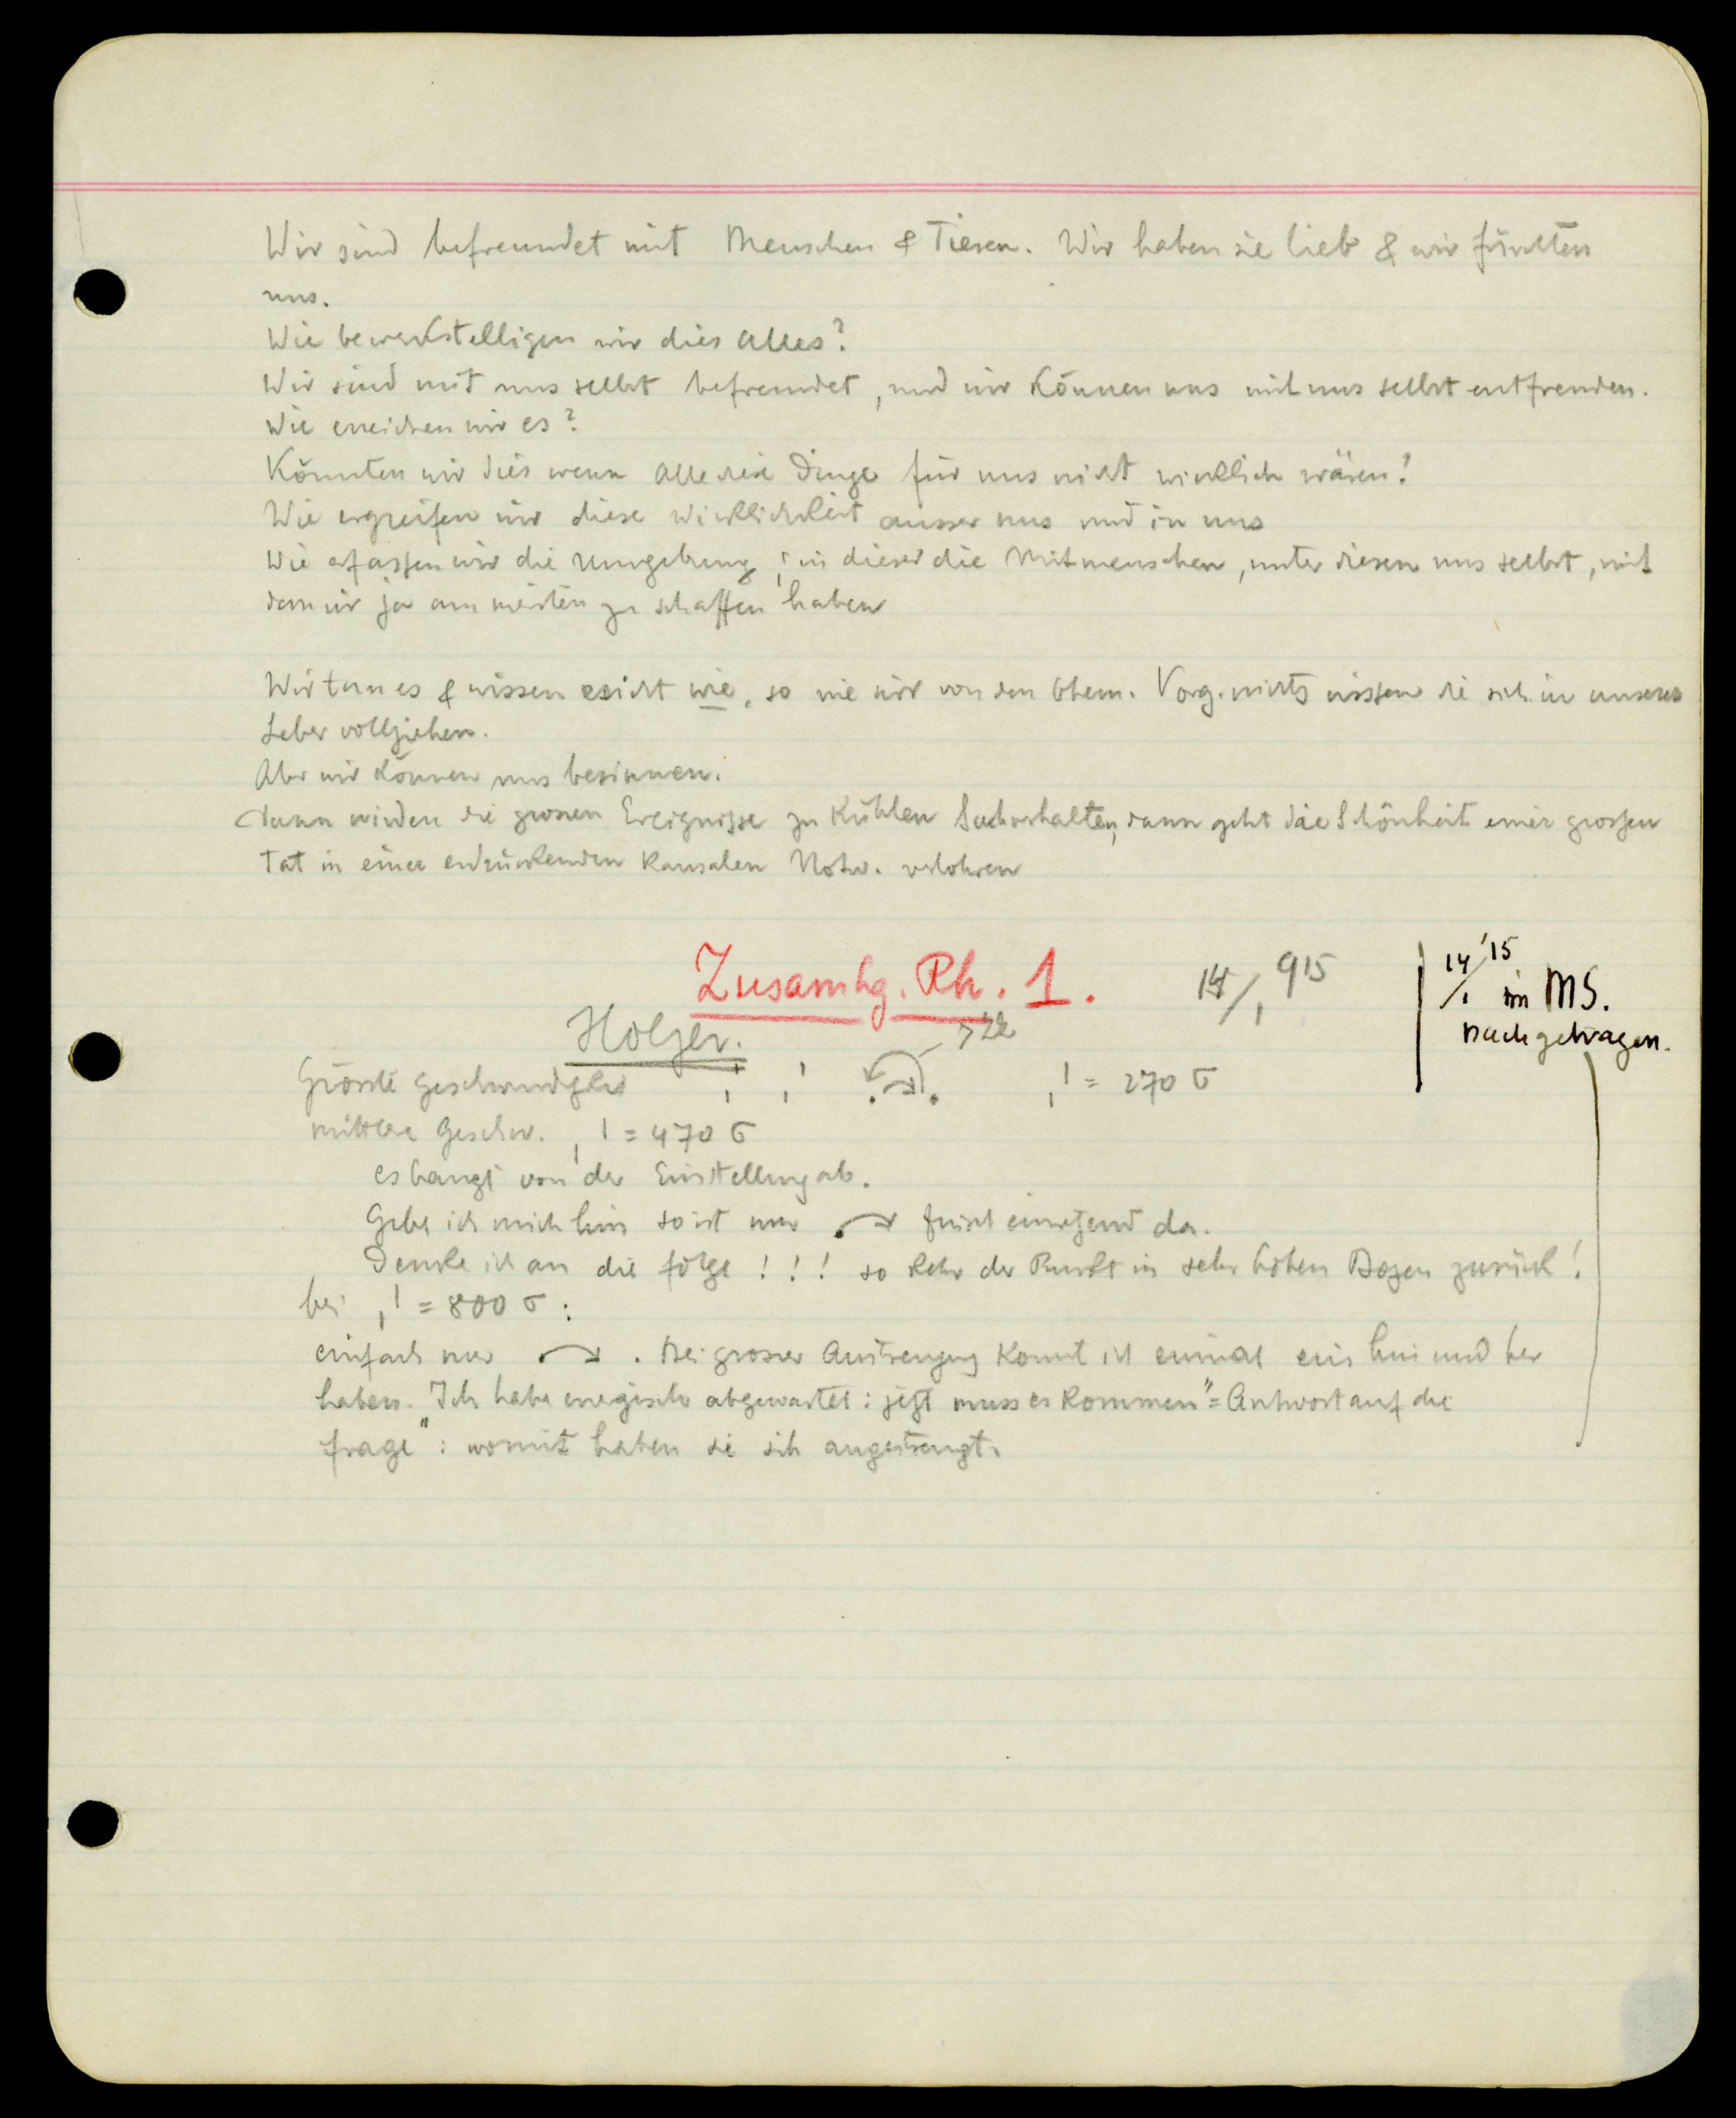 Wir sind befreundet mit Menschen & Tieren. Wir haben sie lieb & wir fürchten
uns.
Wie bewerkstelligen wir dies alles?
Wir sind mit uns selbst befreundet, und wir können uns mit uns selbst entfremden.
Wie erreichen wir es?
Könnten wir dies wenn alle diese Dinge für uns nicht wirklich wären?
Wie ergreifen wir diese Wirklichkeit ausser uns und in uns
Wie erfassen wir die Umgebung; in dieser die Mitmenschen, unter diesen uns selbst, mit
dem wir ja am meisten zu schaffen haben
Wir tun es & wissen nicht wie, so wie wir von den Chem. Vorg. nichts wissen die sich in unserer
Leber vollziehen.
Aber wir können uns besinnen.
Dann werden die grossen Ereignisse zu kühlen Sachverhalten, dann geht die Schönheit einer grossen
Tat in einer erdrückenden kausalen Notw. verlohren
Zusamhg. Ph. 1.
14/1 915
14/1 '15 im MS.
nachgetragen.
Holger.
Grösste Geschwindgkeit , ' = 270 σ
mittlere Geschw. , ' = 470 σ
es hangt von der Einstellung ab.
Gebe ich mich hin so ist nur da.
Denke ich an die folge !!! so kehr der Punkt in sehr hohen Bogen zurück!
bei , ' = 800 σ :
einfach nur . Bei grosser Anstrengung konnt ich einmal ein hin und her
haben. "Ich habe energisch abgewartet: jetzt muss es kommen" = Antwort auf die
frage": womit haben sie sich angestrengt.